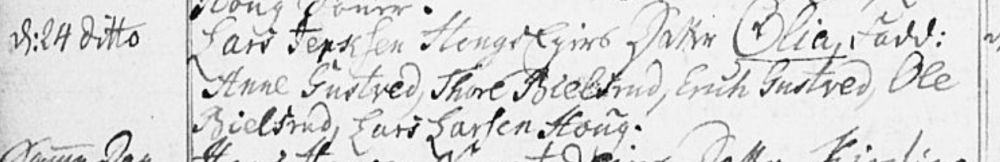 d: 24 ditto
Lars Jensen Hougs Egiers Datter Olia, Fadd:
Anne Gustved, Thore Bielsrud, Erich Gustved, Ole
Bielsrud, Lars Larsen Houg.